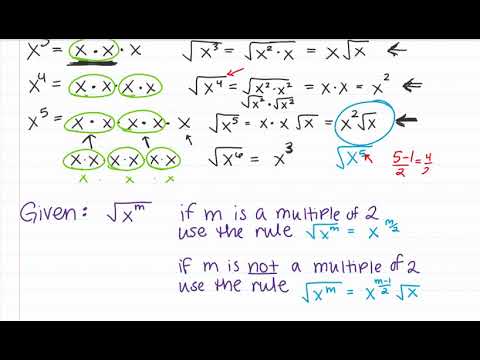 x³ = x · x · x   √x³ = √x² · x = x√x ⇐
x⁴ = x · x · x · x   √x⁴ = √x² · x² = x · x = x² ⇐
√x² · √x²
x⁵ = x · x · x · x · x   √x⁵ = x · x √x = x²√x ←
x·x x·x x·x   √x⁶ = x³   √x⁵   5-1/2 = 4/2
x · x · x
Given: √xᵐ if m is a multiple of 2
use the rule √xᵐ = x^(m/2)
if m is not a multiple of 2
use the rule √xᵐ = x^((m-1)/2) √x